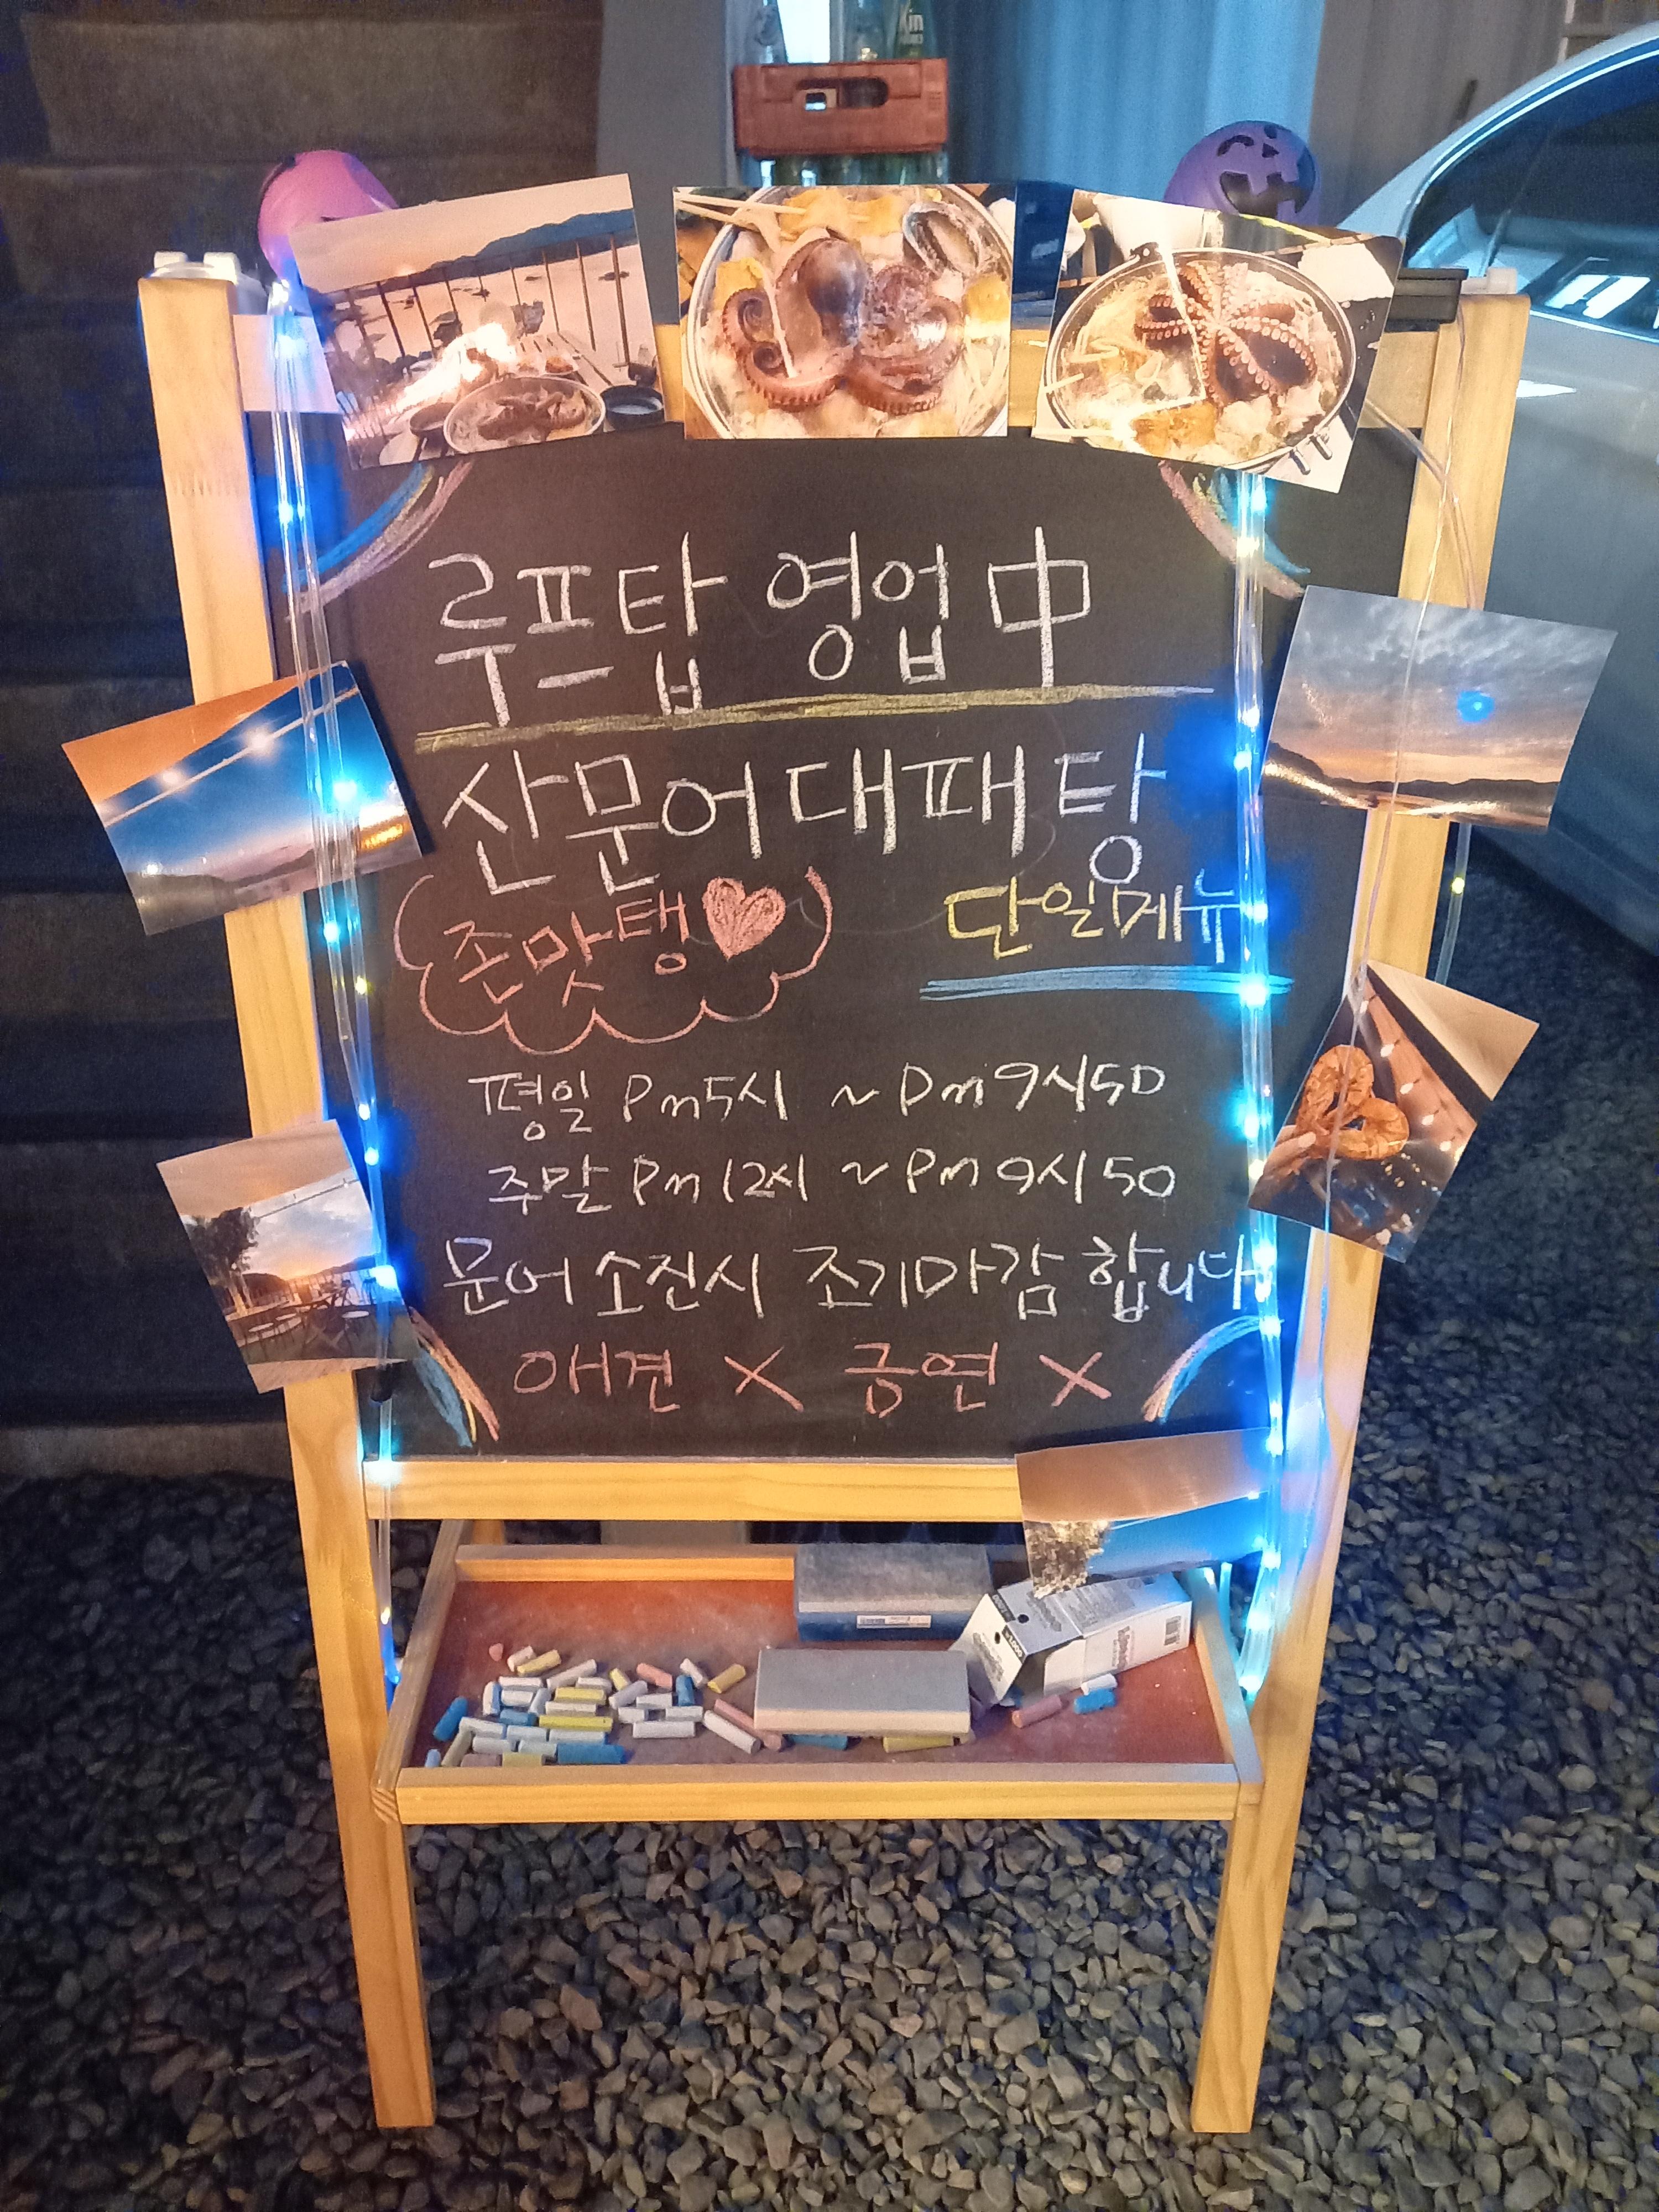 루프탑 영업中
산문어대패탕
존맛탱♥
단일메뉴
평일 Pm5시 ~ Pm9시50
주말 Pm12시 ~ Pm9시50
문어 소진시 조기마감 합니다
애견 X 금연 X